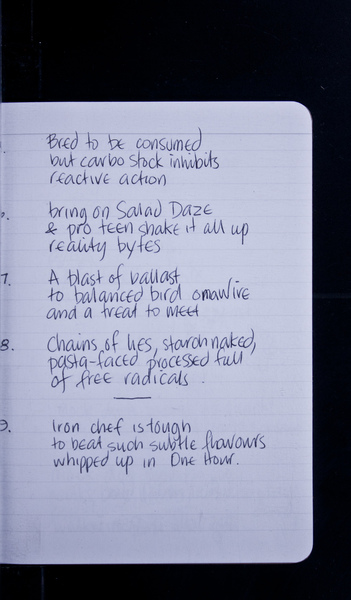 Bred to be consumed
but carbo stock inhibits
reactive action
bring on Salad Daze
& pro teen shake it all up
reality bytes
7. A blast of ballast
to balanced bird onawire
and a treat to meet
8. Chains of lies, starch naked,
pasta-faced processed full
of free radicals.
9. Iron chef is tough
to beat such subtle flavours
whipped up in One Hour.